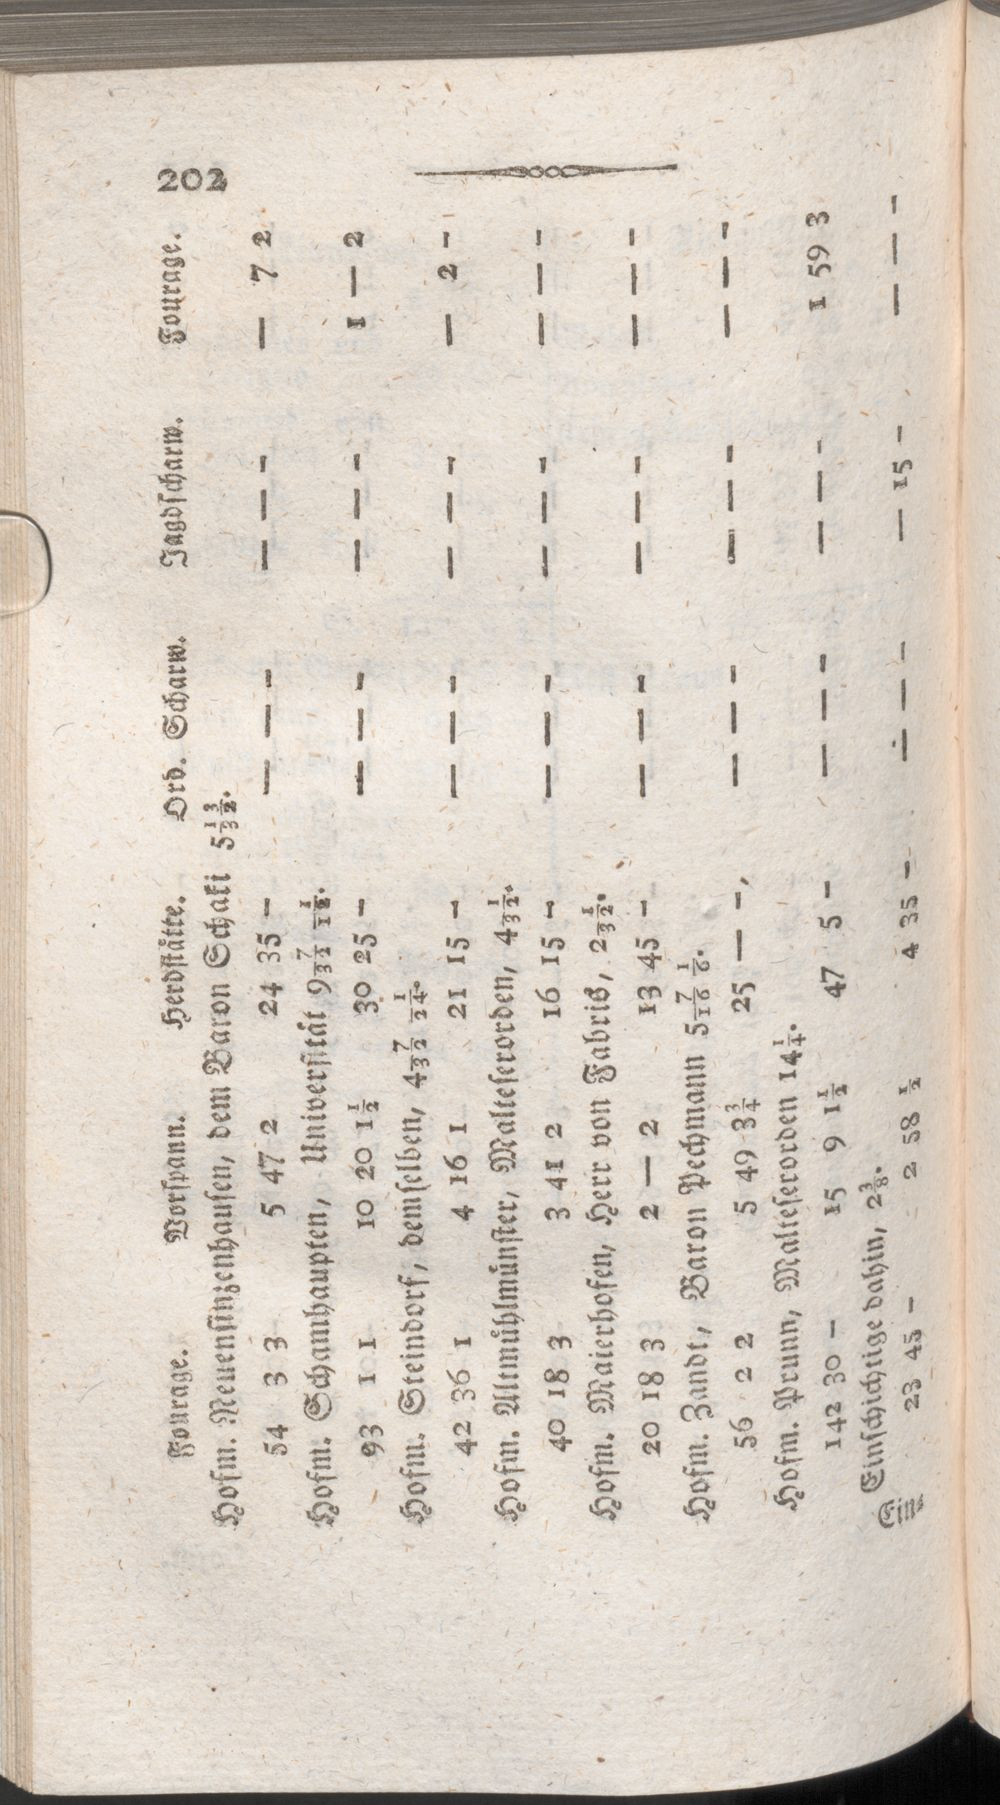 202
Fourage. Vorspann. Herdstätte. Ord. Scharw. Jagdscharw. Fourage.
Hofm. Neuensinzenhausen, dem Baron Schaki 5 13/32.
54 3 3 5 47 2 24 35 — — — — — — — — 7 2
Hofm. Schamhaupten, Universität 9 7/32 1/16.
93 1 1 10 20 1 1/2 30 25 — — — — — — — 1 — 2
Hofm. Steindorf, demselben, 4 7/32 1/24.
42 36 1 4 16 1 21 15 — — — — — — — — 2 —
Hofm. Altmühlmünster, Malteserorden, 4 1/32.
40 18 3 3 41 2 16 15 — — — — — — — — — —
Hofm. Maierhofen, Herr von Fabris, 2 1/32.
20 18 3 2 — 2 13 45 — — — — — — — — — —
Hofm. Zandt, Baron Pechmann 5 7/16 1/6.
56 2 2 5 49 3 3/4 25 — —, — — — — — — — — —
Hofm. Prunn, Malteserorden 14 1/4.
142 30 — 15 9 1 1/2 47 5 — — — — — — — 1 59 3
Einschichtige dahin, 2 3/8.
23 45 — 2 58 1/2 4 35 — — — — — 15 — — — —
Ein=